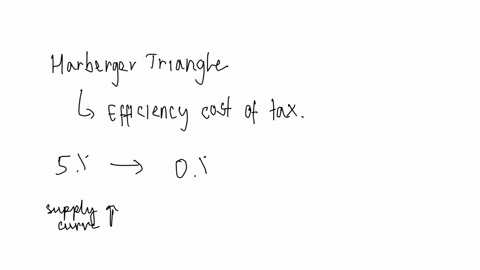 Harberger Triangle
↳ Efficiency cost of tax.
5% → 0%
supply
curve ↑